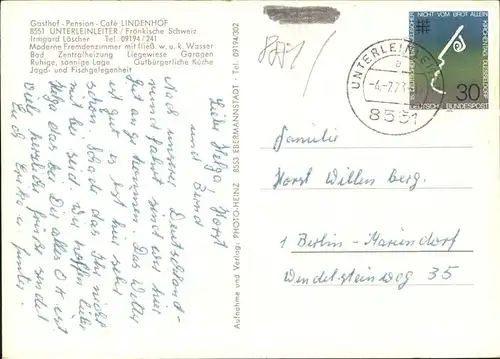 Gasthof - Pension - Café LINDENHOF
8551 UNTERLEINLEITER / Fränkische Schweiz
Irmgard Löscher Tel. 09194/241
Moderne Fremdenzimmer mit fließ. w. u. k. Wasser
Bad Zentralheizung Liegewiese Garagen
Ruhige, sonnige Lage Gutbürgerliche Küche
Jagd- und Fischgelegenheit
Liebe Helga, Horst
und Bernd
Nach unserer Deutschland-
rundfahrt sind wir hier
gut angekommen. Das Wetter
ist gut es ist hier sehr
schön. Schade das Ihr nicht
mit bei seid. Wir hoffen liebe
Helga das bei Dir alles OK ist
Viele herzliche Grüße sendet
Euch
Aufnahme und Verlag: PHOTO-HEINZ 8553 EBERMANNSTADT - Tel. 09194/302
UNTERLEINLEITER
a
-4.-7.73
8551
NICHT VOM BROT ALLEIN
30
DEUTSCHE BUNDESPOST
Familie
Horst Willenberg.
1 Berlin - Mariendorf
Wendelsteinweg 35